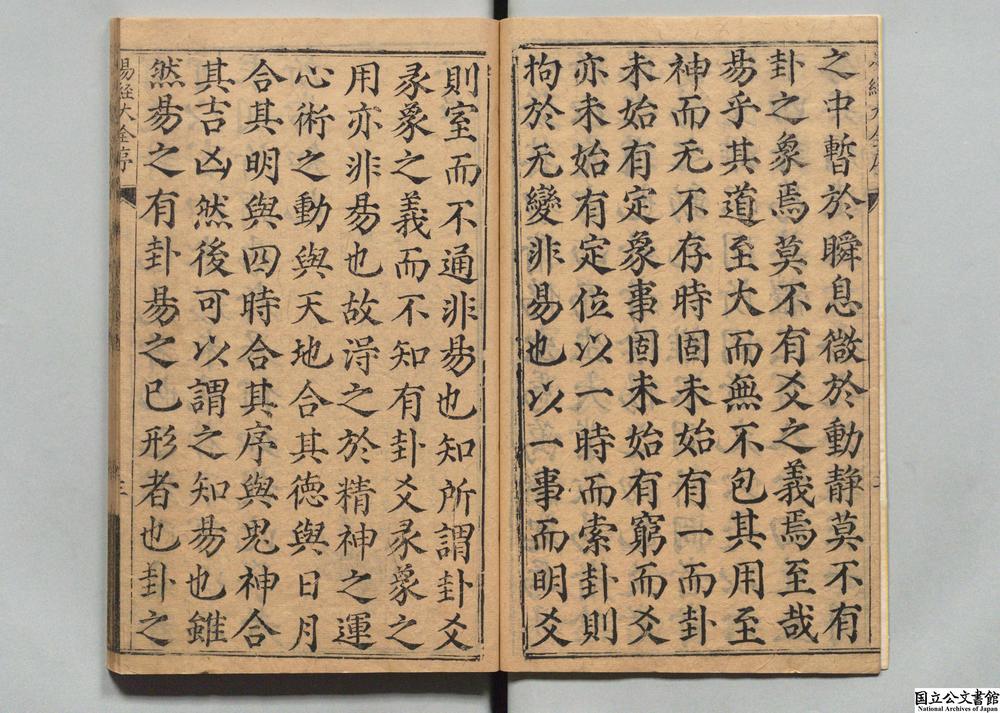 之中暫於瞬息微於動静莫不有
卦之象焉莫不有爻之義焉至哉
易乎其道至大而無不包其用至
神而无不存時固未始有一而卦
未始有定象事固未始有窮而爻
亦未始有定位以一時而索卦則
拘於无變非易也以一事而明爻
則室而不通非易也知所謂卦爻
彖象之義而不知有卦爻彖象之
用亦非易也故淂之於精神之運
心術之動與天地合其德與日月
合其明與四時合其序與鬼神合
其吉凶然後可以謂之知易也雖
然易之有卦易之已形者也卦之
易經大全序
三
国立公文書館
National Archives of Japan